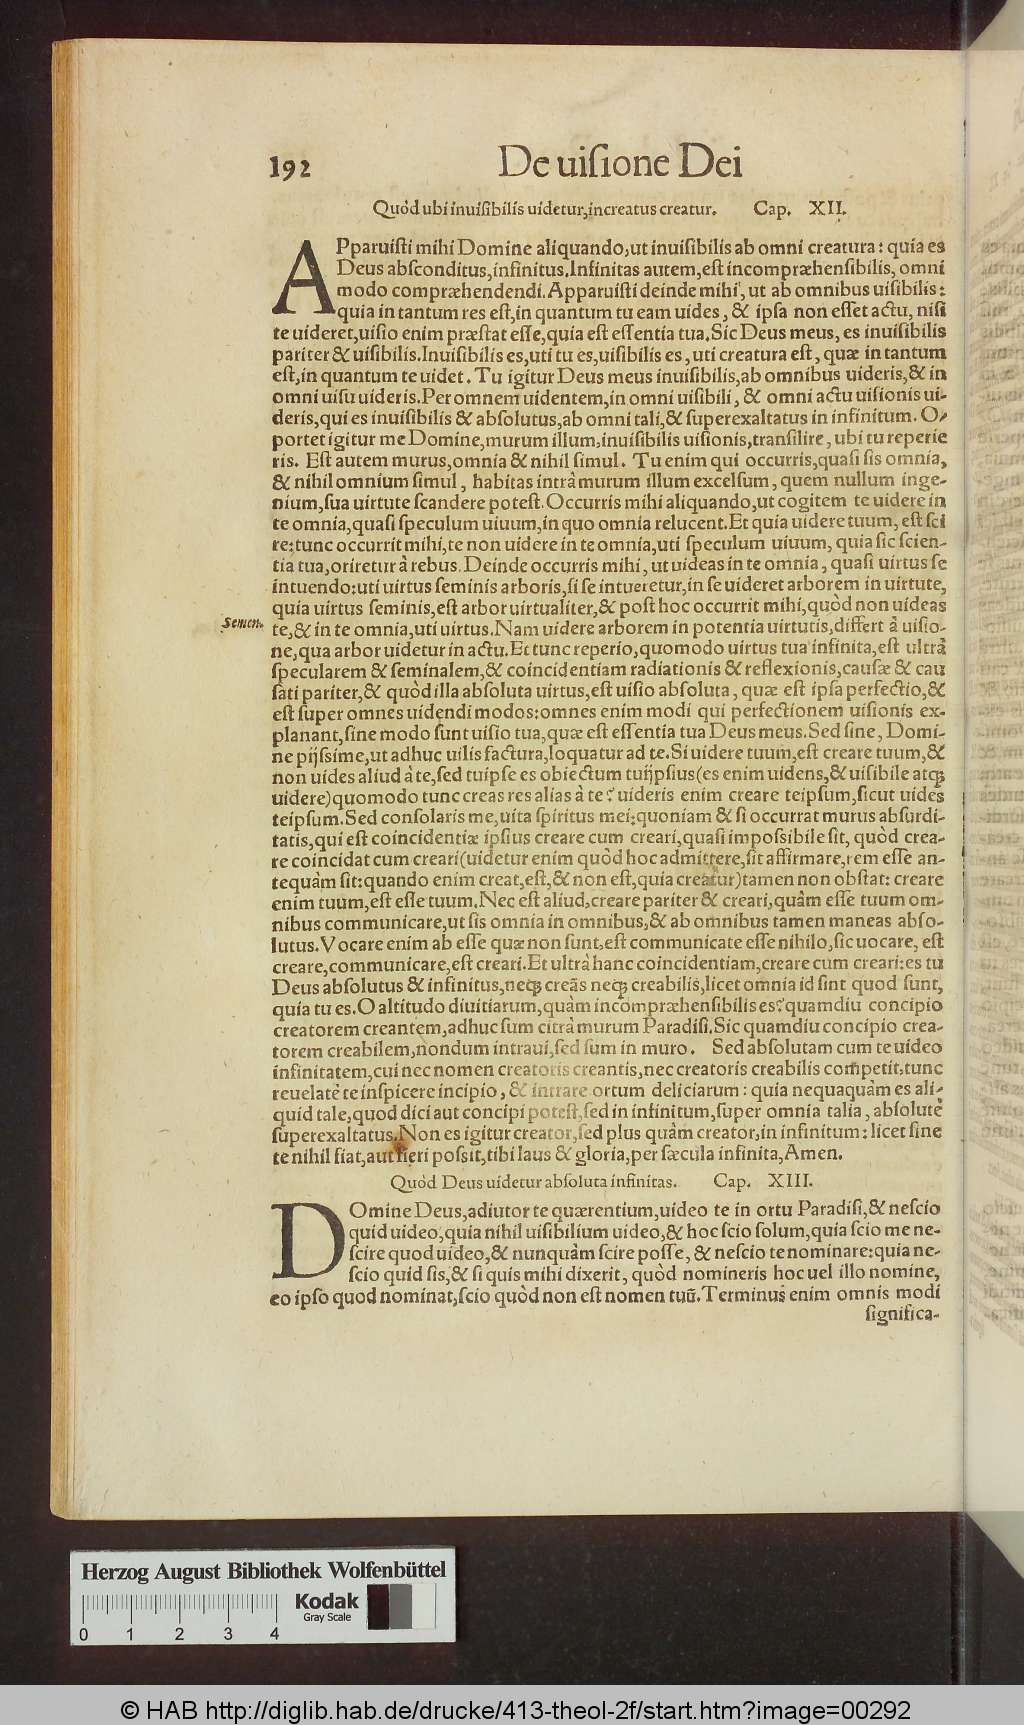 192 De uiſione Dei
Quòd ubi inuiſibilis uidetur, increatus creatur. Cap. XII.
APparuiſti mihi Domine aliquando, ut inuiſibilis ab omni creatura: quia es
Deus abſconditus, infinitus. Infinitas autem, eſt incompræhenſibilis, omni
modo compræhendendi. Apparuiſti deinde mihi, ut ab omnibus uiſibilis:
quia in tantum res eſt, in quantum tu eam uides, & ipſa non eſſet actu, niſi
te uideret, uiſio enim præſtat eſſe, quia eſt eſſentia tua. Sic Deus meus, es inuiſibilis
pariter & uiſibilis. Inuiſibilis es, uti tu es, uiſibilis es, uti creatura eſt, quæ in tantum
eſt, in quantum te uidet. Tu igitur Deus meus inuiſibilis, ab omnibus uideris, & in
omni uiſu uideris. Per omnem uidentem, in omni uiſibili, & omni actu uiſionis ui-
deris, qui es inuiſibilis & abſolutus, ab omni tali, & ſuperexaltatus in infinitum. O-
portet igitur me Domine, murum illum, inuiſibilis uiſionis, tranſilire, ubi tu reperie
ris. Eſt autem murus, omnia & nihil ſimul. Tu enim qui occurris, quaſi ſis omnia,
& nihil omnium ſimul, habitas intrà murum illum excelſum, quem nullum inge-
nium, ſua uirtute ſcandere poteſt. Occurris mihi aliquando, ut cogitem te uidere in
te omnia, quaſi ſpeculum uiuum, in quo omnia relucent. Et quia uidere tuum, eſt ſci
re: tunc occurrit mihi, te non uidere in te omnia, uti ſpeculum uiuum, quia ſic ſcien-
tia tua, oriretur à rebus. Deinde occurris mihi, ut uideas in te omnia, quaſi uirtus ſe
intuendo: uti uirtus ſeminis arboris, ſi ſe intueretur, in ſe uideret arborem in uirtute,
quia uirtus ſeminis, eſt arbor uirtualiter, & poſt hoc occurrit mihi, quòd non uideas
Semen.
te, & in te omnia, uti uirtus. Nam uidere arborem in potentia uirtutis, differt à uiſio-
ne, qua arbor uidetur in actu. Et tunc reperio, quomodo uirtus tua infinita, eſt ultrà
ſpecularem & ſeminalem, & coincidentiam radiationis & reflexionis, cauſæ & cau
ſati pariter, & quòd illa abſoluta uirtus, eſt uiſio abſoluta, quæ eſt ipſa perfectio, &
eſt ſuper omnes uidendi modos: omnes enim modi qui perfectionem uiſionis ex-
planant, ſine modo ſunt uiſio tua, quæ eſt eſſentia tua Deus meus. Sed ſine, Domi-
ne pijſsime, ut adhuc uilis factura, loquatur ad te. Si uidere tuum, eſt creare tuum, &
non uides aliud à te, ſed tuipſe es obiectum tuijpſius (es enim uidens, & uiſibile atq́;
uidere) quomodo tunc creas res alias à te? uideris enim creare teipſum, ſicut uides
teipſum. Sed conſolaris me, uita ſpiritus mei: quoniam & ſi occurrat murus abſurdi-
tatis, qui eſt coincidentiæ ipſius creare cum creari, quaſi impoſsibile ſit, quòd crea-
re coincidat cum creari (uidetur enim quòd hoc admittere, ſit affirmare, rem eſſe an-
tequàm ſit: quando enim creat, eſt, & non eſt, quia creatur) tamen non obſtat: creare
enim tuum, eſt eſſe tuum. Nec eſt aliud, creare pariter & creari, quàm eſſe tuum om-
nibus communicare, ut ſis omnia in omnibus, & ab omnibus tamen maneas abſo-
lutus. Vocare enim ab eſſe quæ non ſunt, eſt communicate eſſe nihilo, ſic uocare, eſt
creare, communicare, eſt creari. Et ultrà hanc coincidentiam, creare cum creari: es tu
Deus abſolutus & infinitus, neq́; creãs neq́; creabilis, licet omnia id ſint quod ſunt,
quia tu es. O altitudo diuitiarum, quàm incompræhenſibilis es? quamdiu concipio
creatorem creantem, adhuc ſum citrà murum Paradiſi. Sic quamdiu concipio crea-
torem creabilem, nondum intraui, ſed ſum in muro. Sed abſolutam cum te uideo
infinitatem, cui nec nomen creatoris creantis, nec creatoris creabilis competit, tunc
reuelatè te inſpicere incipio, & intrare ortum deliciarum: quia nequaquàm es ali-
quid tale, quod dici aut concipi poteſt, ſed in infinitum, ſuper omnia talia, abſolutè
ſuperexaltatus. Non es igitur creator, ſed plus quàm creator, in infinitum: licet ſine
te nihil fiat, aut fieri poſsit, tibi laus & gloria, per ſæcula infinita, Amen.
Quòd Deus uidetur abſoluta infinitas. Cap. XIII.
DOmine Deus, adiutor te quærentium, uideo te in ortu Paradiſi, & neſcio
quid uideo, quia nihil uiſibilium uideo, & hoc ſcio ſolum, quia ſcio me ne-
ſcire quod uideo, & nunquàm ſcire poſſe, & neſcio te nominare: quia ne-
ſcio quid ſis, & ſi quis mihi dixerit, quòd nomineris hoc uel illo nomine,
eo ipſo quod nominat, ſcio quòd non eſt nomen tuũ. Terminus enim omnis modi
ſignifica-
Herzog August Bibliothek Wolfenbüttel
Kodak
Gray Scale
0 1 2 3 4
© HAB http://diglib.hab.de/drucke/413-theol-2f/start.htm?image=00292